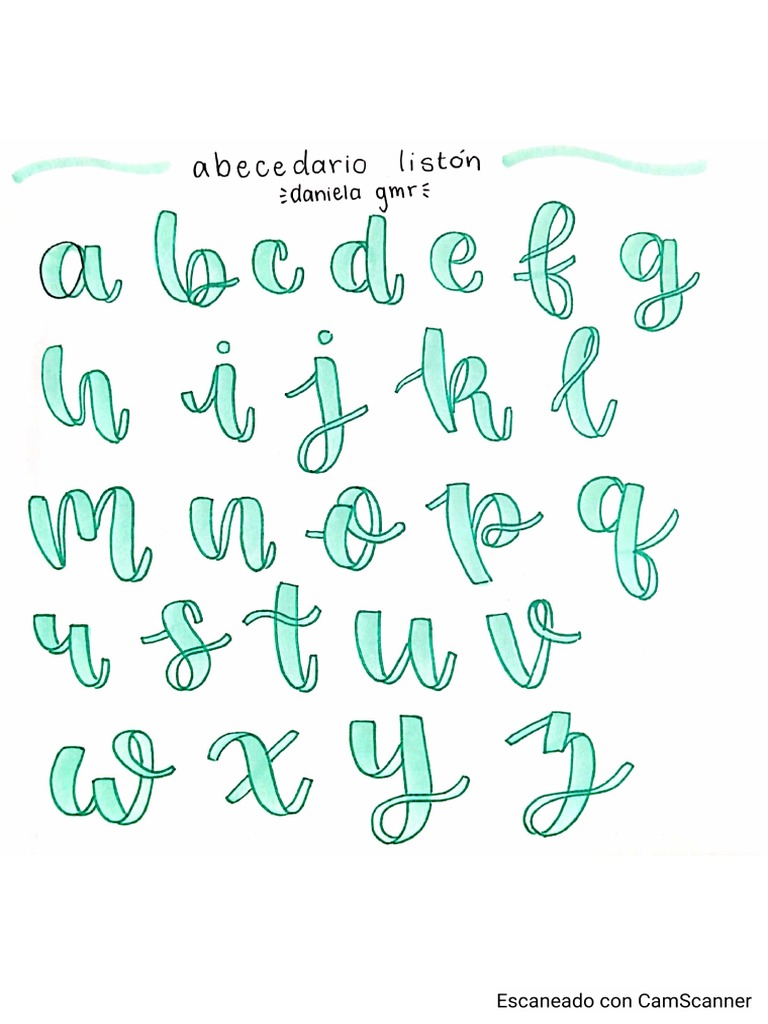 abecedario listón
daniela gmr
a b c d e f g
h i j k l
m n o p q
r s t u v
w x y z
Escaneado con CamScanner